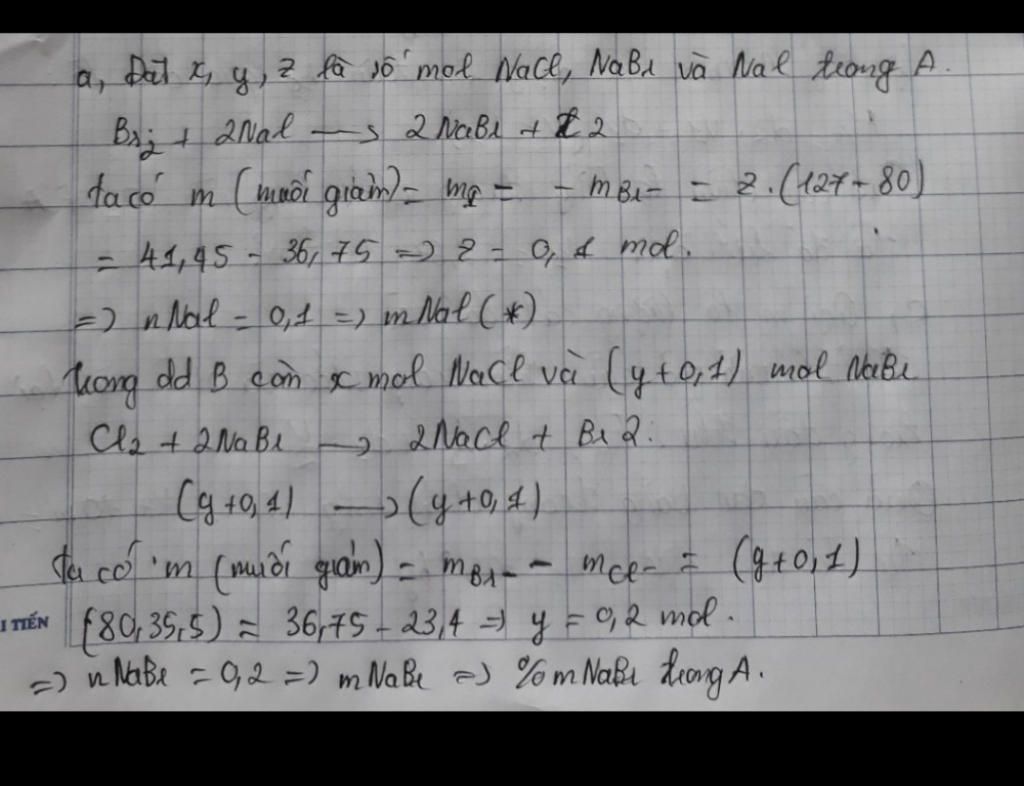 a, Đặt x, y, z là số mol NaCl, NaBr và NaI trong A.
Br2 + 2NaI → 2NaBr + I2
ta có m (muối giảm) = mI- - mBr- = z.(127-80)
= 41,45 - 36,75 => z = 0,1 mol.
=> nNaI = 0,1 => mNaI (*)
trong dd B còn x mol NaCl và (y+0,1) mol NaBr
Cl2 + 2NaBr → 2NaCl + Br2.
(y+0,1) → (y+0,1)
ta có m (muối giảm) = mBr- - mCl- = (y+0,1)
(80,35,5) = 36,75 - 23,4 => y = 0,2 mol.
I TIẾN
=> nNaBr = 0,2 => mNaBr => %mNaBr trong A.